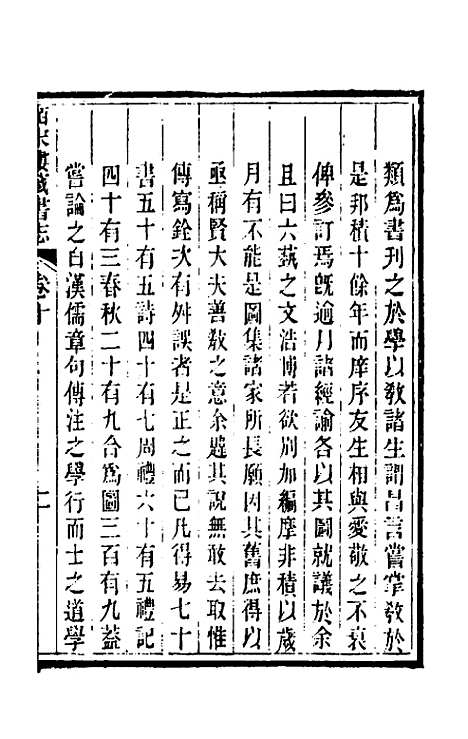 類爲書刊之於學以敎諸生謂昌言嘗掌敎於
是邦積十餘年而庠序友生相與愛敬之不衰
俾參訂焉旣逾月諸經諭各以其圖就議於余
且曰六藝之文浩博若欲別加編摩非積以歲
月有不能是圖集諸家所長願因其舊庶得以
亟稱賢大夫善敎之意余韙其說無敢去取惟
傳寫銓次有舛誤者是正之而已凡得易七十
書五十有五詩四十有七周禮六十有五禮記
四十有三春秋二十有九合爲圖三百有九葢
嘗論之自漢儒章句傳注之學行而士之道學
皕宋樓藏書志 卷十